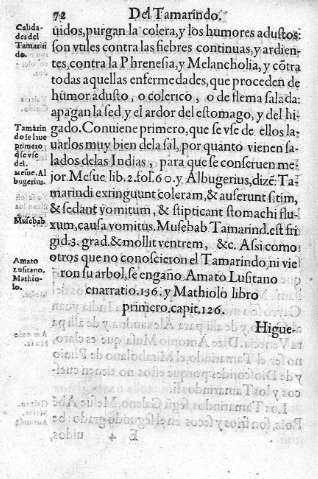 72 Del Tamarindo.
Calida-
des del
Tamarin
do.
uidos, purgan la colera, y los humores adustos:
son vtiles contra las fiebres continuas, y ardien-
tes, contra la Phrenesia, y Melancholia, y cõtra
todas aquellas enfermedades, que proceden de
humor adusto, o colerico, o de flema salada:
apagan la sed, y el ardor del estomago, y del hi-
gado. Conuiene primero, que se vse de ellos la-
Tamarin
do se laue
primero,
q̃ se vse
del.
uarlos muy bien de la sal, por quanto vienen sa-
lados de las Indias, para que se conseruen me-
jor. Mesue lib. 2. fol. 60. y Albugerius, dizẽ: Ta-
Mesue. Al
bugerius.
marindi extinguunt coleram, & auferunt sitim,
& sedant vomitum, & stipticant stomachi flu-
xum, causa vomitus. Musehab Tamarind. est fri
Musehab.
gid. 3. grad. & mollit ventrem, &c. Assi como
otros que no conoscieron el Tamarindo, ni vie
ron su arbol, se engaño Amato Lusitano
Amato
Lusitano.
Mathio-
lo.
enarratio. 136. y Mathiolo libro
primero, capit. 126.
Higue-